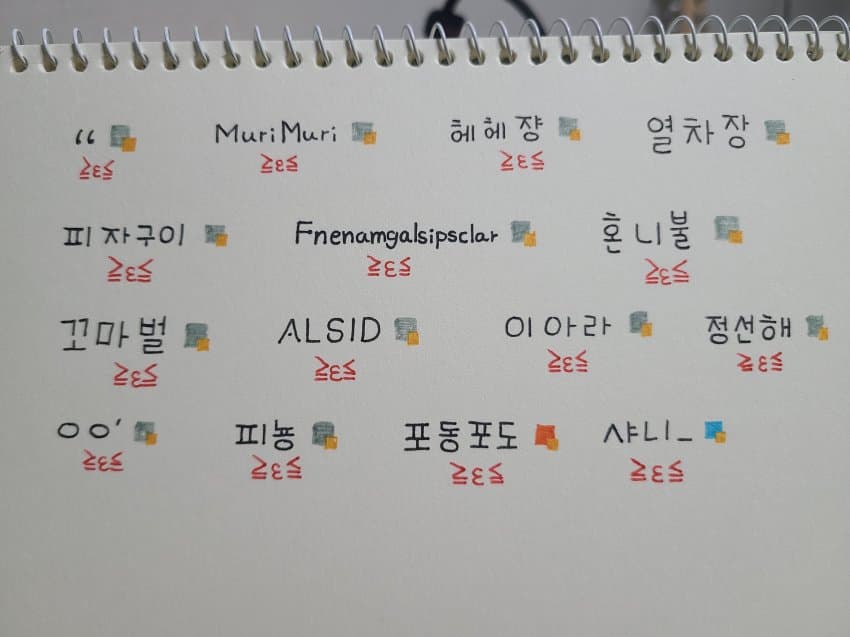 “ MuriMuri 헤헤쟝 열차장
≧ε≦ ≧ε≦ ≧ε≦
피자구이 Fnenamgalsipsclar 혼니불
≧ε≦ ≧ε≦ ≧ε≦
꼬마벌 ALSID 이아라 정선해
≧ε≦ ≧ε≦ ≧ε≦ ≧ε≦
ㅇㅇ' 피뇽 포동포도 샤니_
≧ε≦ ≧ε≦ ≧ε≦ ≧ε≦